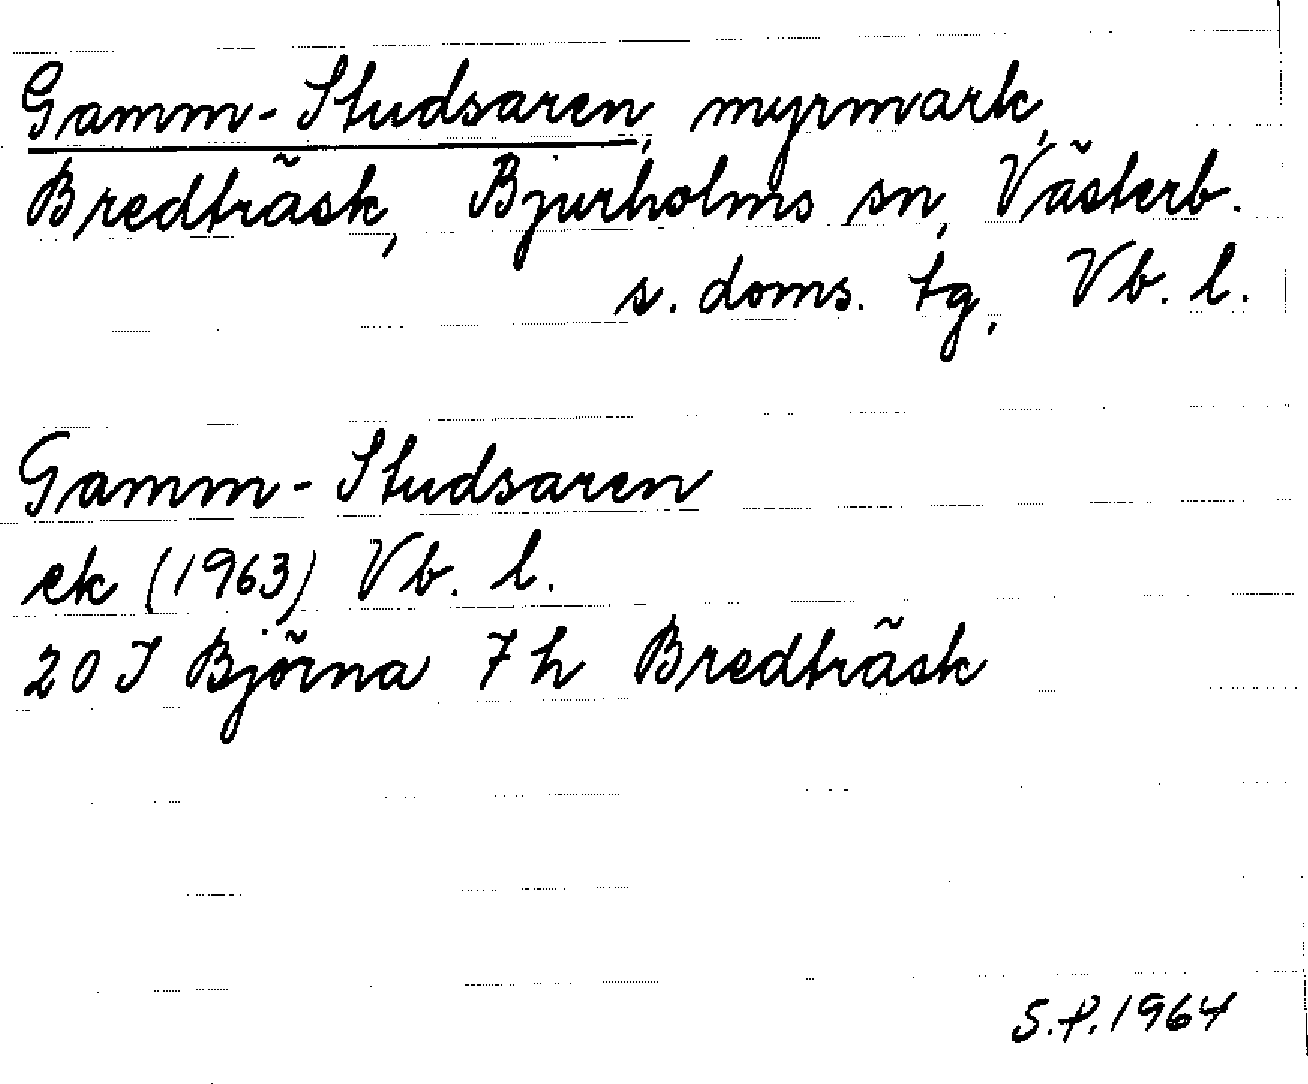 Gamm-Studsaren, myrmark,
Bredträsk, Bjurholms sn, Västerb.
s. doms. tg, Vb. l.
Gamm-Studsaren
ek (1963) Vb. l.
20 J Björna 7 h Bredträsk
S.P. 1964